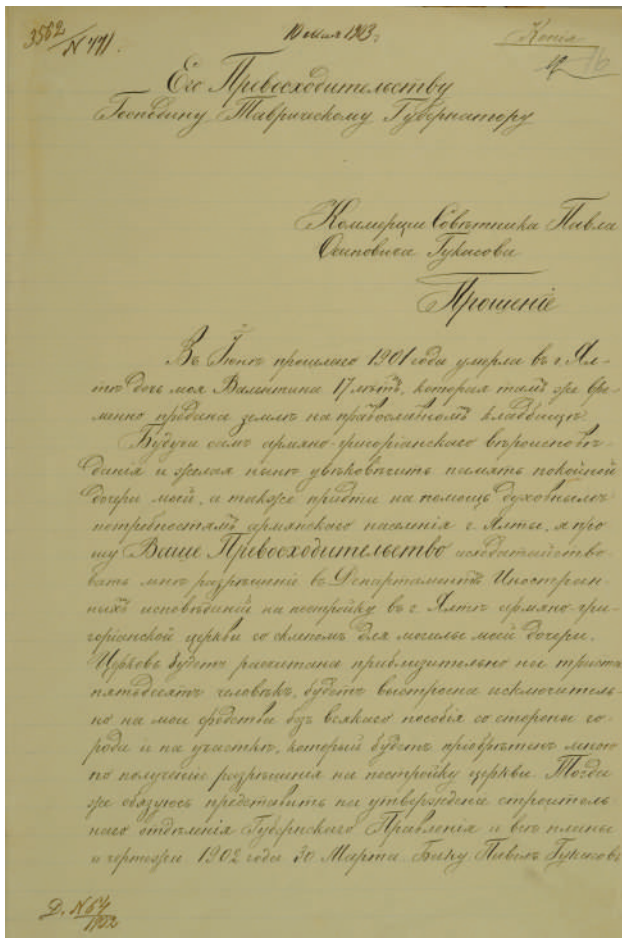 3562/N 771.
10 мая 1903 г.
Копія
Его Превосходительству
Господину Таврическому Губернатору
Коммерціи Совѣтника Павла
Осиповича Гукасова
Прошеніе
Въ Іюнѣ прошлаго 1901 года умерла въ г. Ял-
тѣ дочь моя Валентина 17 лѣтъ, которая тамъ же вре-
менно предана землѣ на православномъ кладбищѣ.
Будучи самъ армяно-григоріанскаго вѣроисповѣ-
данія и желая нынѣ увѣковѣчить память покойной
дочери моей, а также придти на помощь духовнымъ
потребностямъ армянскаго населенія г. Ялты, я про
шу Ваше Превосходительство исходатайство-
вать мнѣ разрѣшеніе въ Департаментѣ Иностран-
ныхъ исповѣданій на постройку въ г. Ялтѣ армяно-гри-
горіанской церкви со склепомъ для могилы моей дочери.
Церковь будетъ расчитана приблизительно на триста
пятьдесятъ человѣкъ, будетъ выстроена исключитель-
но на мои средства безъ всякаго пособія со стороны го-
рода и на участкѣ, который будетъ пріобрѣтенъ мною
по полученіи разрѣшенія на постройку церкви. Тогда
же обязуюсь представить на утвержденіе строитель-
наго отдѣленія Губернскаго Правленія и всѣ планы
и чертежи. 1902 года 30 Марта. Баку. Павелъ Гукасовъ
Д. N 64/1902